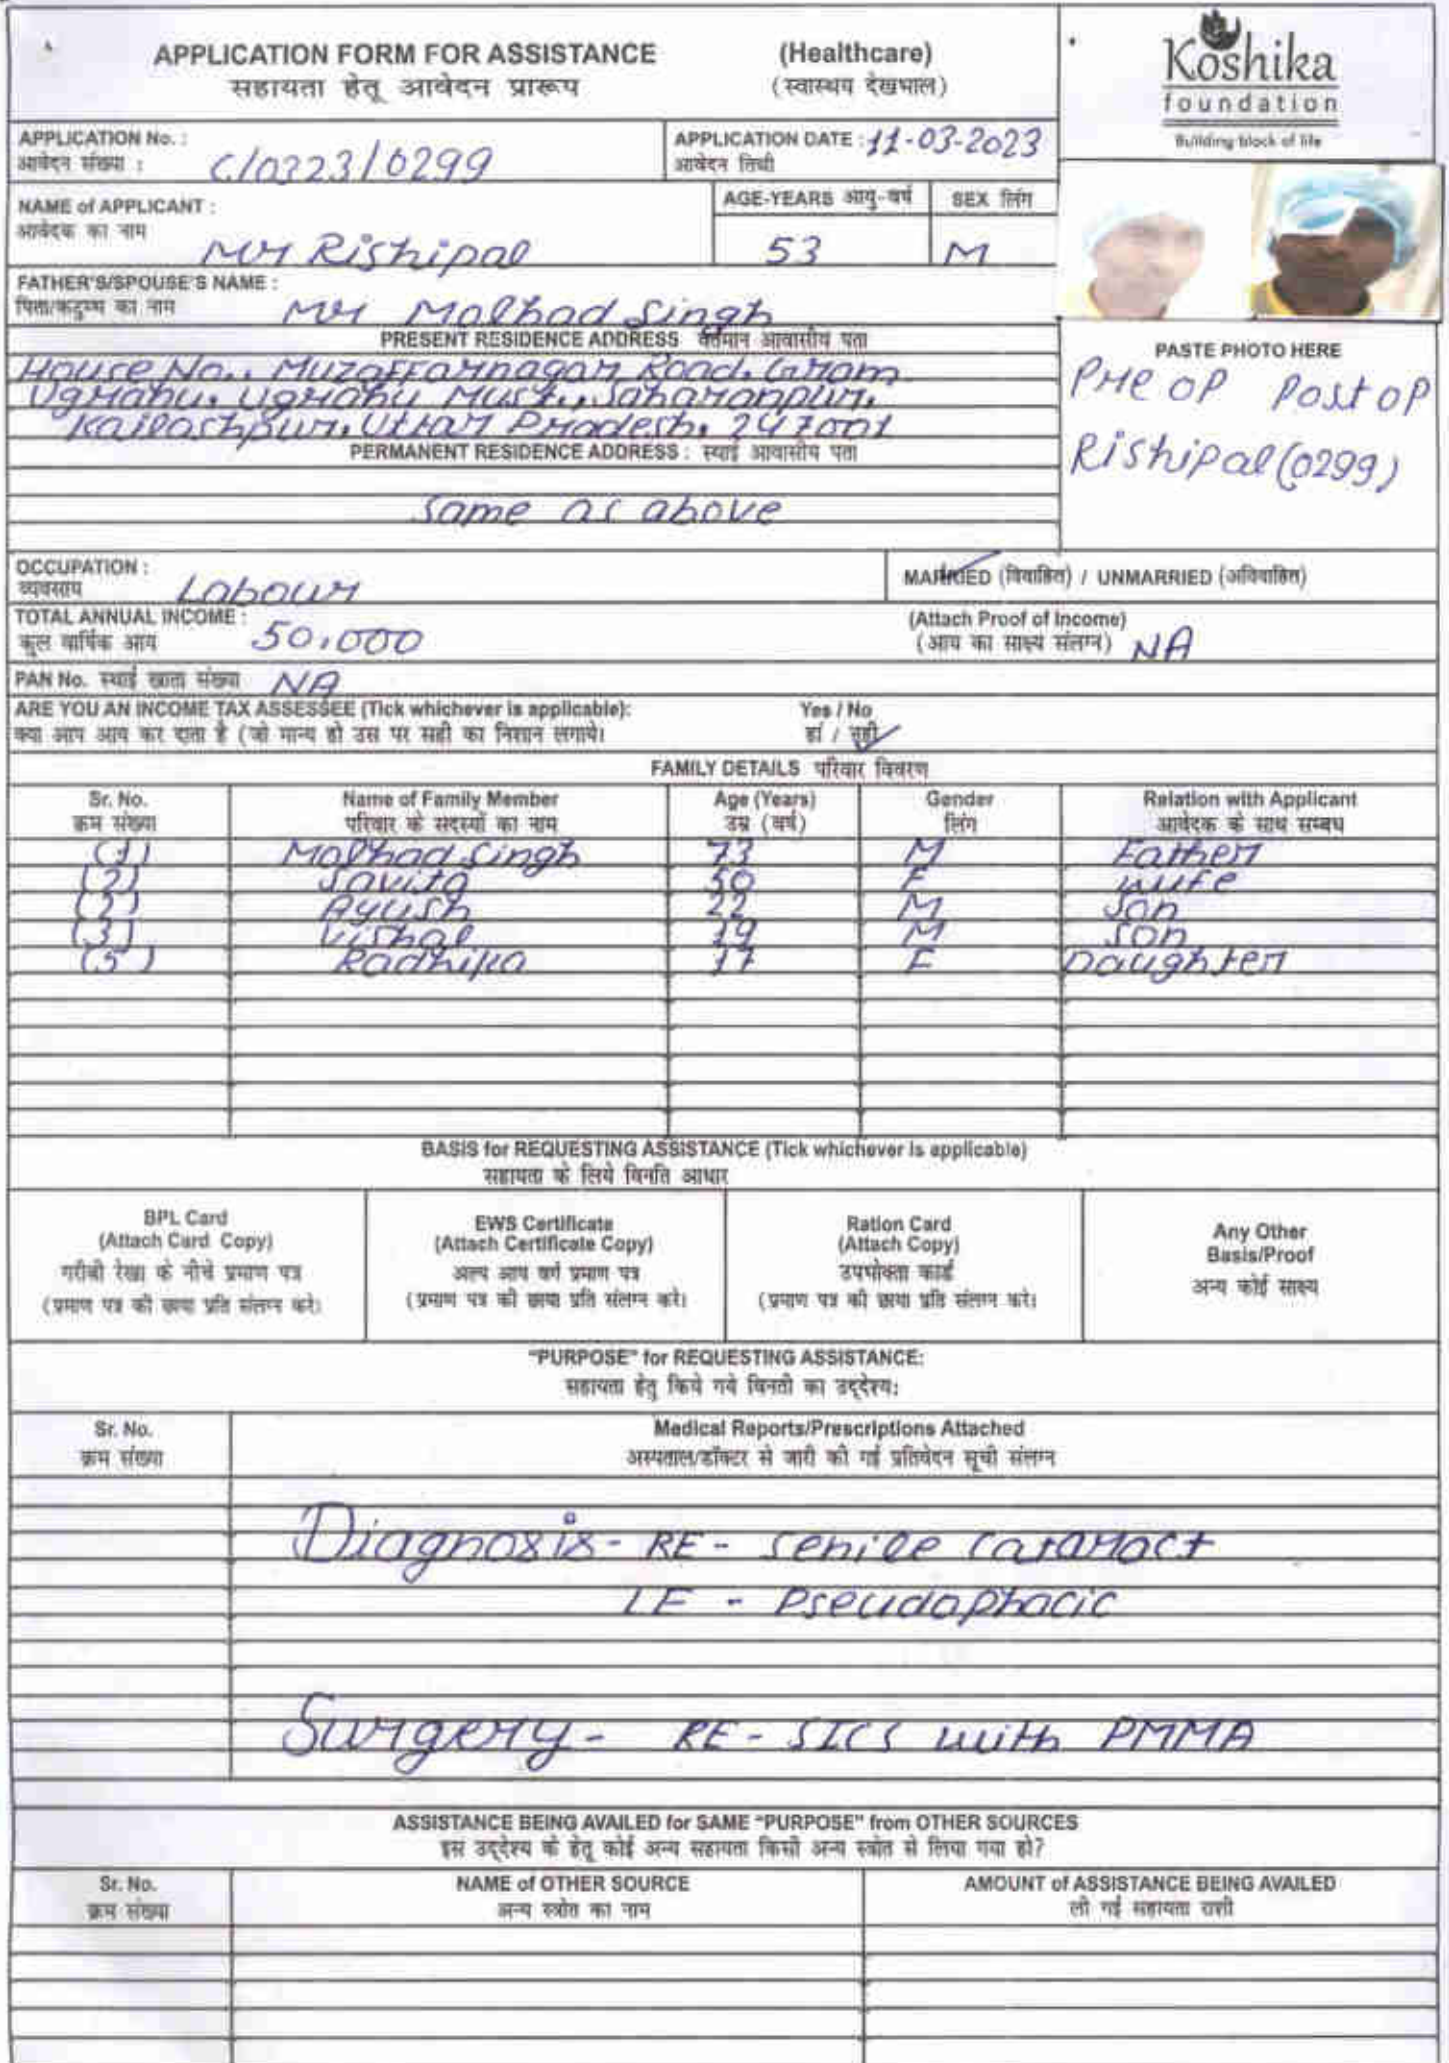 APPLICATION FORM FOR ASSISTANCE (Healthcare)
सहायता हेतू आवेदन प्रारूप (स्वास्थय देखभाल)
Koshika
foundation
Building block of life
APPLICATION No. : C/0323/0299 APPLICATION DATE : 11-03-2023
आवेदन संख्या : आवेदन तिथी
NAME of APPLICANT : AGE-YEARS आयु-वर्ष SEX लिंग
आवेदक का नाम Mr Rishipal 53 M
FATHER'S/SPOUSE'S NAME :
पिता/कटुम्ब का नाम Mr Molhad Singh
PRESENT RESIDENCE ADDRESS वर्तमान आवासीय पता
House No., Muzaffarnagar Road, Gram
Ugrahu, Ugrahu Must., Saharanpur,
Kailashpur, Uttar Pradesh, 247001
PERMANENT RESIDENCE ADDRESS : स्थाई आवासीय पता
Same as above
PASTE PHOTO HERE
Pre op Post op
Rishipal (0299)
OCCUPATION :
व्यवसाय Labour MARRIED (विवाहित) / UNMARRIED (अविवाहित)
TOTAL ANNUAL INCOME : (Attach Proof of Income)
कुल वार्षिक आय 50,000 (आय का साक्ष्य संलग्न) NA
PAN No. स्थाई खाता संख्या NA
ARE YOU AN INCOME TAX ASSESSEE (Tick whichever is applicable): Yes / No
क्या आप आय कर दाता है (जो मान्य हो उस पर सही का निशान लगाये। हां / नहीं
FAMILY DETAILS परिवार विवरण
Sr. No. Name of Family Member Age (Years) Gender Relation with Applicant
क्रम संख्या परिवार के सदस्यों का नाम उम्र (वर्ष) लिंग आवेदक के साथ सम्बध
(1) Molhad Singh 73 M Father
(2) Savita 50 F Wife
(2) Ayush 22 M Son
(3) Vishal 19 M Son
(5) Radhika 17 F Daughter
BASIS for REQUESTING ASSISTANCE (Tick whichever is applicable)
सहायता के लिये विनति आधार
BPL Card
(Attach Card Copy)
गरीबी रेखा के नीचे प्रमाण पत्र
(प्रमाण पत्र की छाया प्रति संलग्न करे।
EWS Certificate
(Attach Certificate Copy)
अल्प आय वर्ग प्रमाण पत्र
(प्रमाण पत्र की छाया प्रति संलग्न करे।
Ration Card
(Attach Copy)
उपभोक्ता कार्ड
(प्रमाण पत्र की छाया प्रति संलग्न करे।
Any Other
Basis/Proof
अन्य कोई साक्ष्य
"PURPOSE" for REQUESTING ASSISTANCE:
सहायता हेतु किये गये विनती का उद्देश्य:
Sr. No. Medical Reports/Prescriptions Attached
क्रम संख्या अस्पताल/डॉक्टर से जारी की गई प्रतिवेदन सूची संलग्न
Diagnosis- RE - Senile Cataract
LE - Pseudophacic
Surgery- RE - SICS with PMMA
ASSISTANCE BEING AVAILED for SAME "PURPOSE" from OTHER SOURCES
इस उद्देश्य के हेतू कोई अन्य सहायता किसी अन्य स्त्रोत से लिया गया हो?
Sr. No. NAME of OTHER SOURCE AMOUNT of ASSISTANCE BEING AVAILED
क्रम संख्या अन्य स्त्रोत का नाम ली गई सहायता राशी